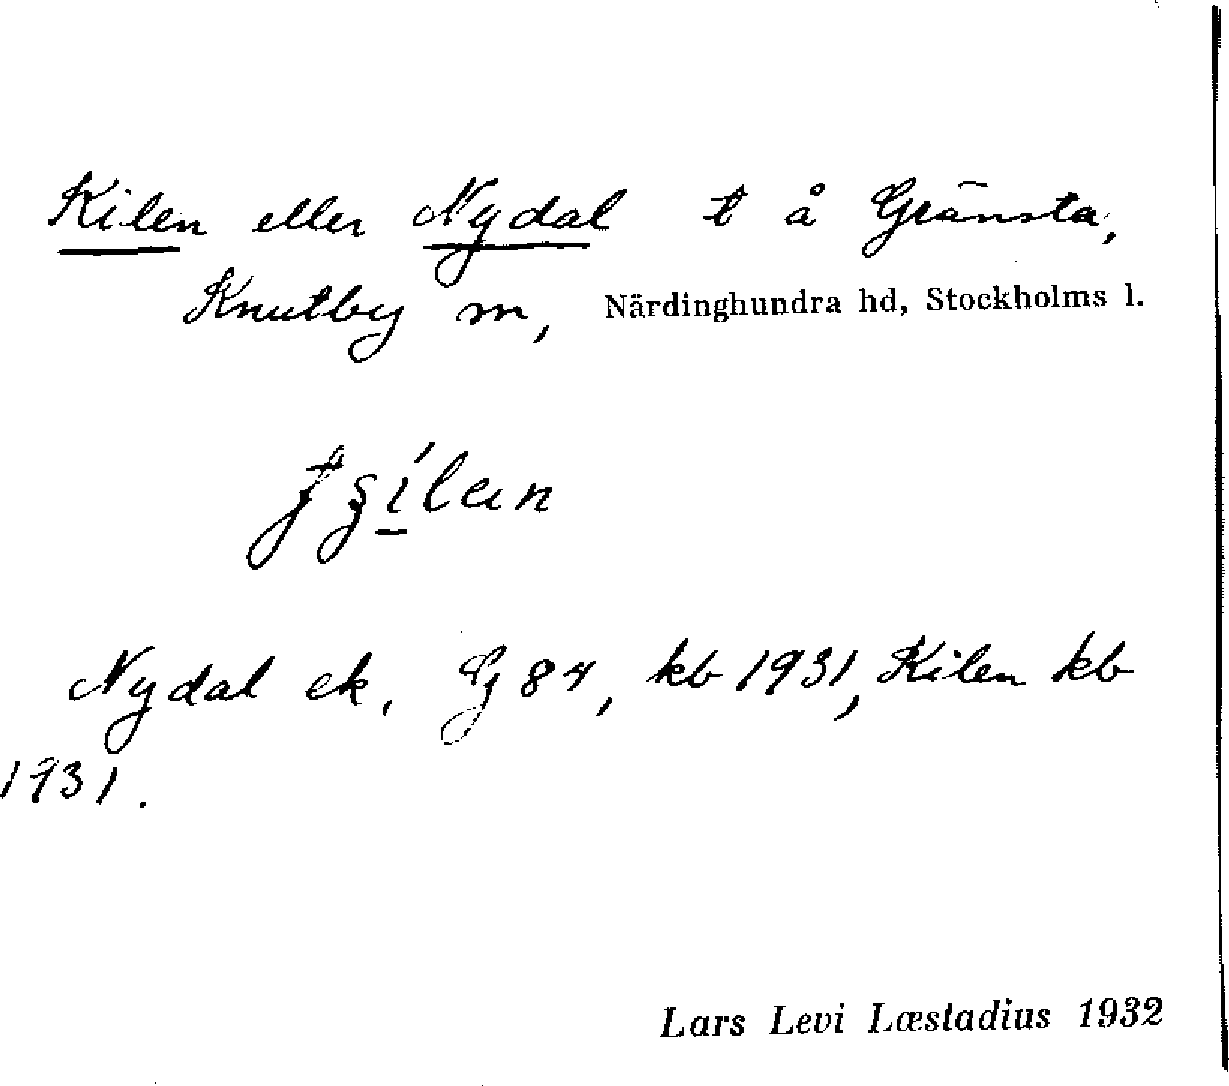 Kilen eller Nydal t å Gränsta,
Knutby sn, Närdinghundra hd, Stockholms l.
Nydal ek, Lj 84, kb 1931, Kilen kb
1931.
Lars Levi Læstadius 1932